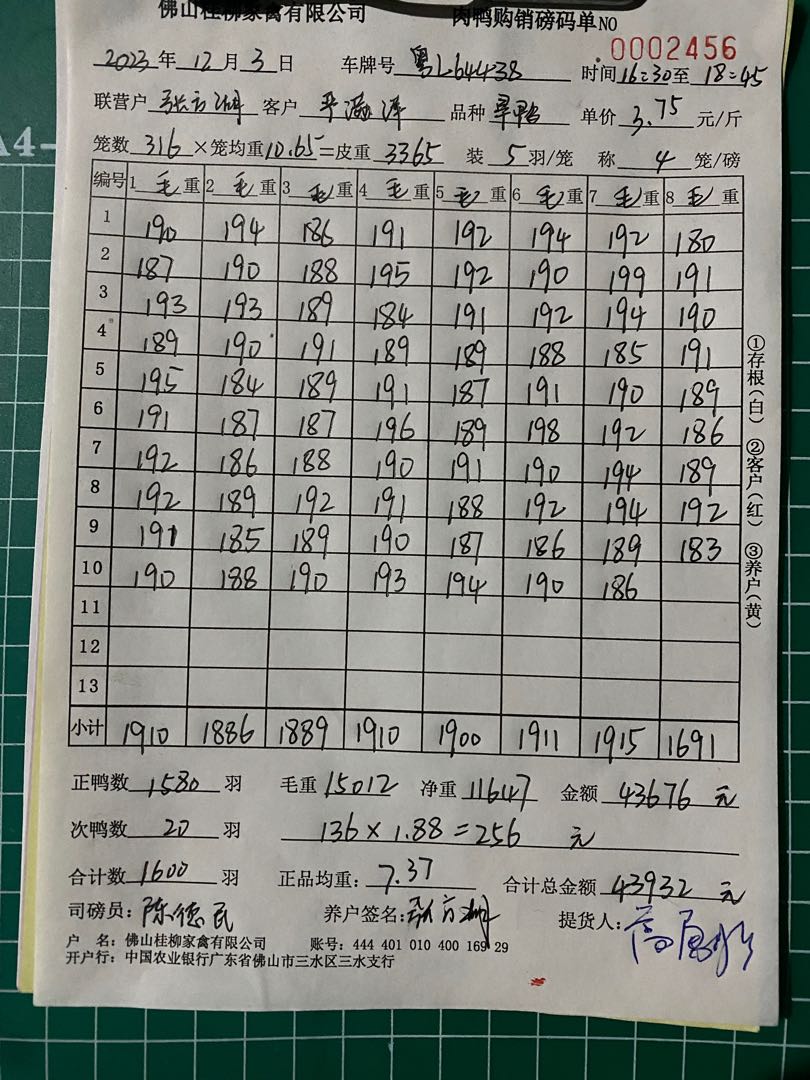 佛山桂柳家禽有限公司 肉鸭购销磅码单 NO 0002456
2023年 12月 3日 车牌号 粤L64438 时间 16:30至 18:45
联营户 张方湖 客户 品种 单价 3.75 元/斤
笼数 316 ×笼均重 10.65 =皮重 3365 装 5 羽/笼 称 4 笼/磅
编号 1 毛 重 2 毛 重 3 毛 重 4 毛 重 5 毛 重 6 毛 重 7 毛 重 8 毛 重
1 190 194 186 191 192 194 192 180
2 187 190 188 195 192 190 199 191
3 193 193 189 184 191 192 194 190
4 189 190 191 189 189 188 185 191
5 195 184 189 191 187 191 190 189
6 191 187 187 196 189 198 192 186
7 192 186 188 190 191 190 194 189
8 192 189 192 191 188 192 194 192
9 191 185 189 190 187 186 189 183
10 190 188 190 193 194 190 186
11
12
13
小计 1910 1886 1889 1910 1900 1911 1915 1691
①存根(白) ②客户(红) ③养户(黄)
正鸭数 1580 羽 毛重 15012 净重 11647 金额 43676 元
次鸭数 20 羽 136 × 1.88 = 256 元
合计数 1600 羽 正品均重: 7.37 合计总金额 43932 元
司磅员: 陈德民 养户签名: 张方湖 提货人:
户 名: 佛山桂柳家禽有限公司 账号: 444 401 010 400 169 29
开户行: 中国农业银行广东省佛山市三水区三水支行
A4